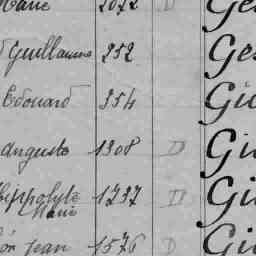 Marie 2072 D Ge
Guillaume 252 Ge
Edouard 354 Gi
Auguste 1308 D Gi
Hippolyte Marie 1737 D Gi
Jean 1576 D Gi